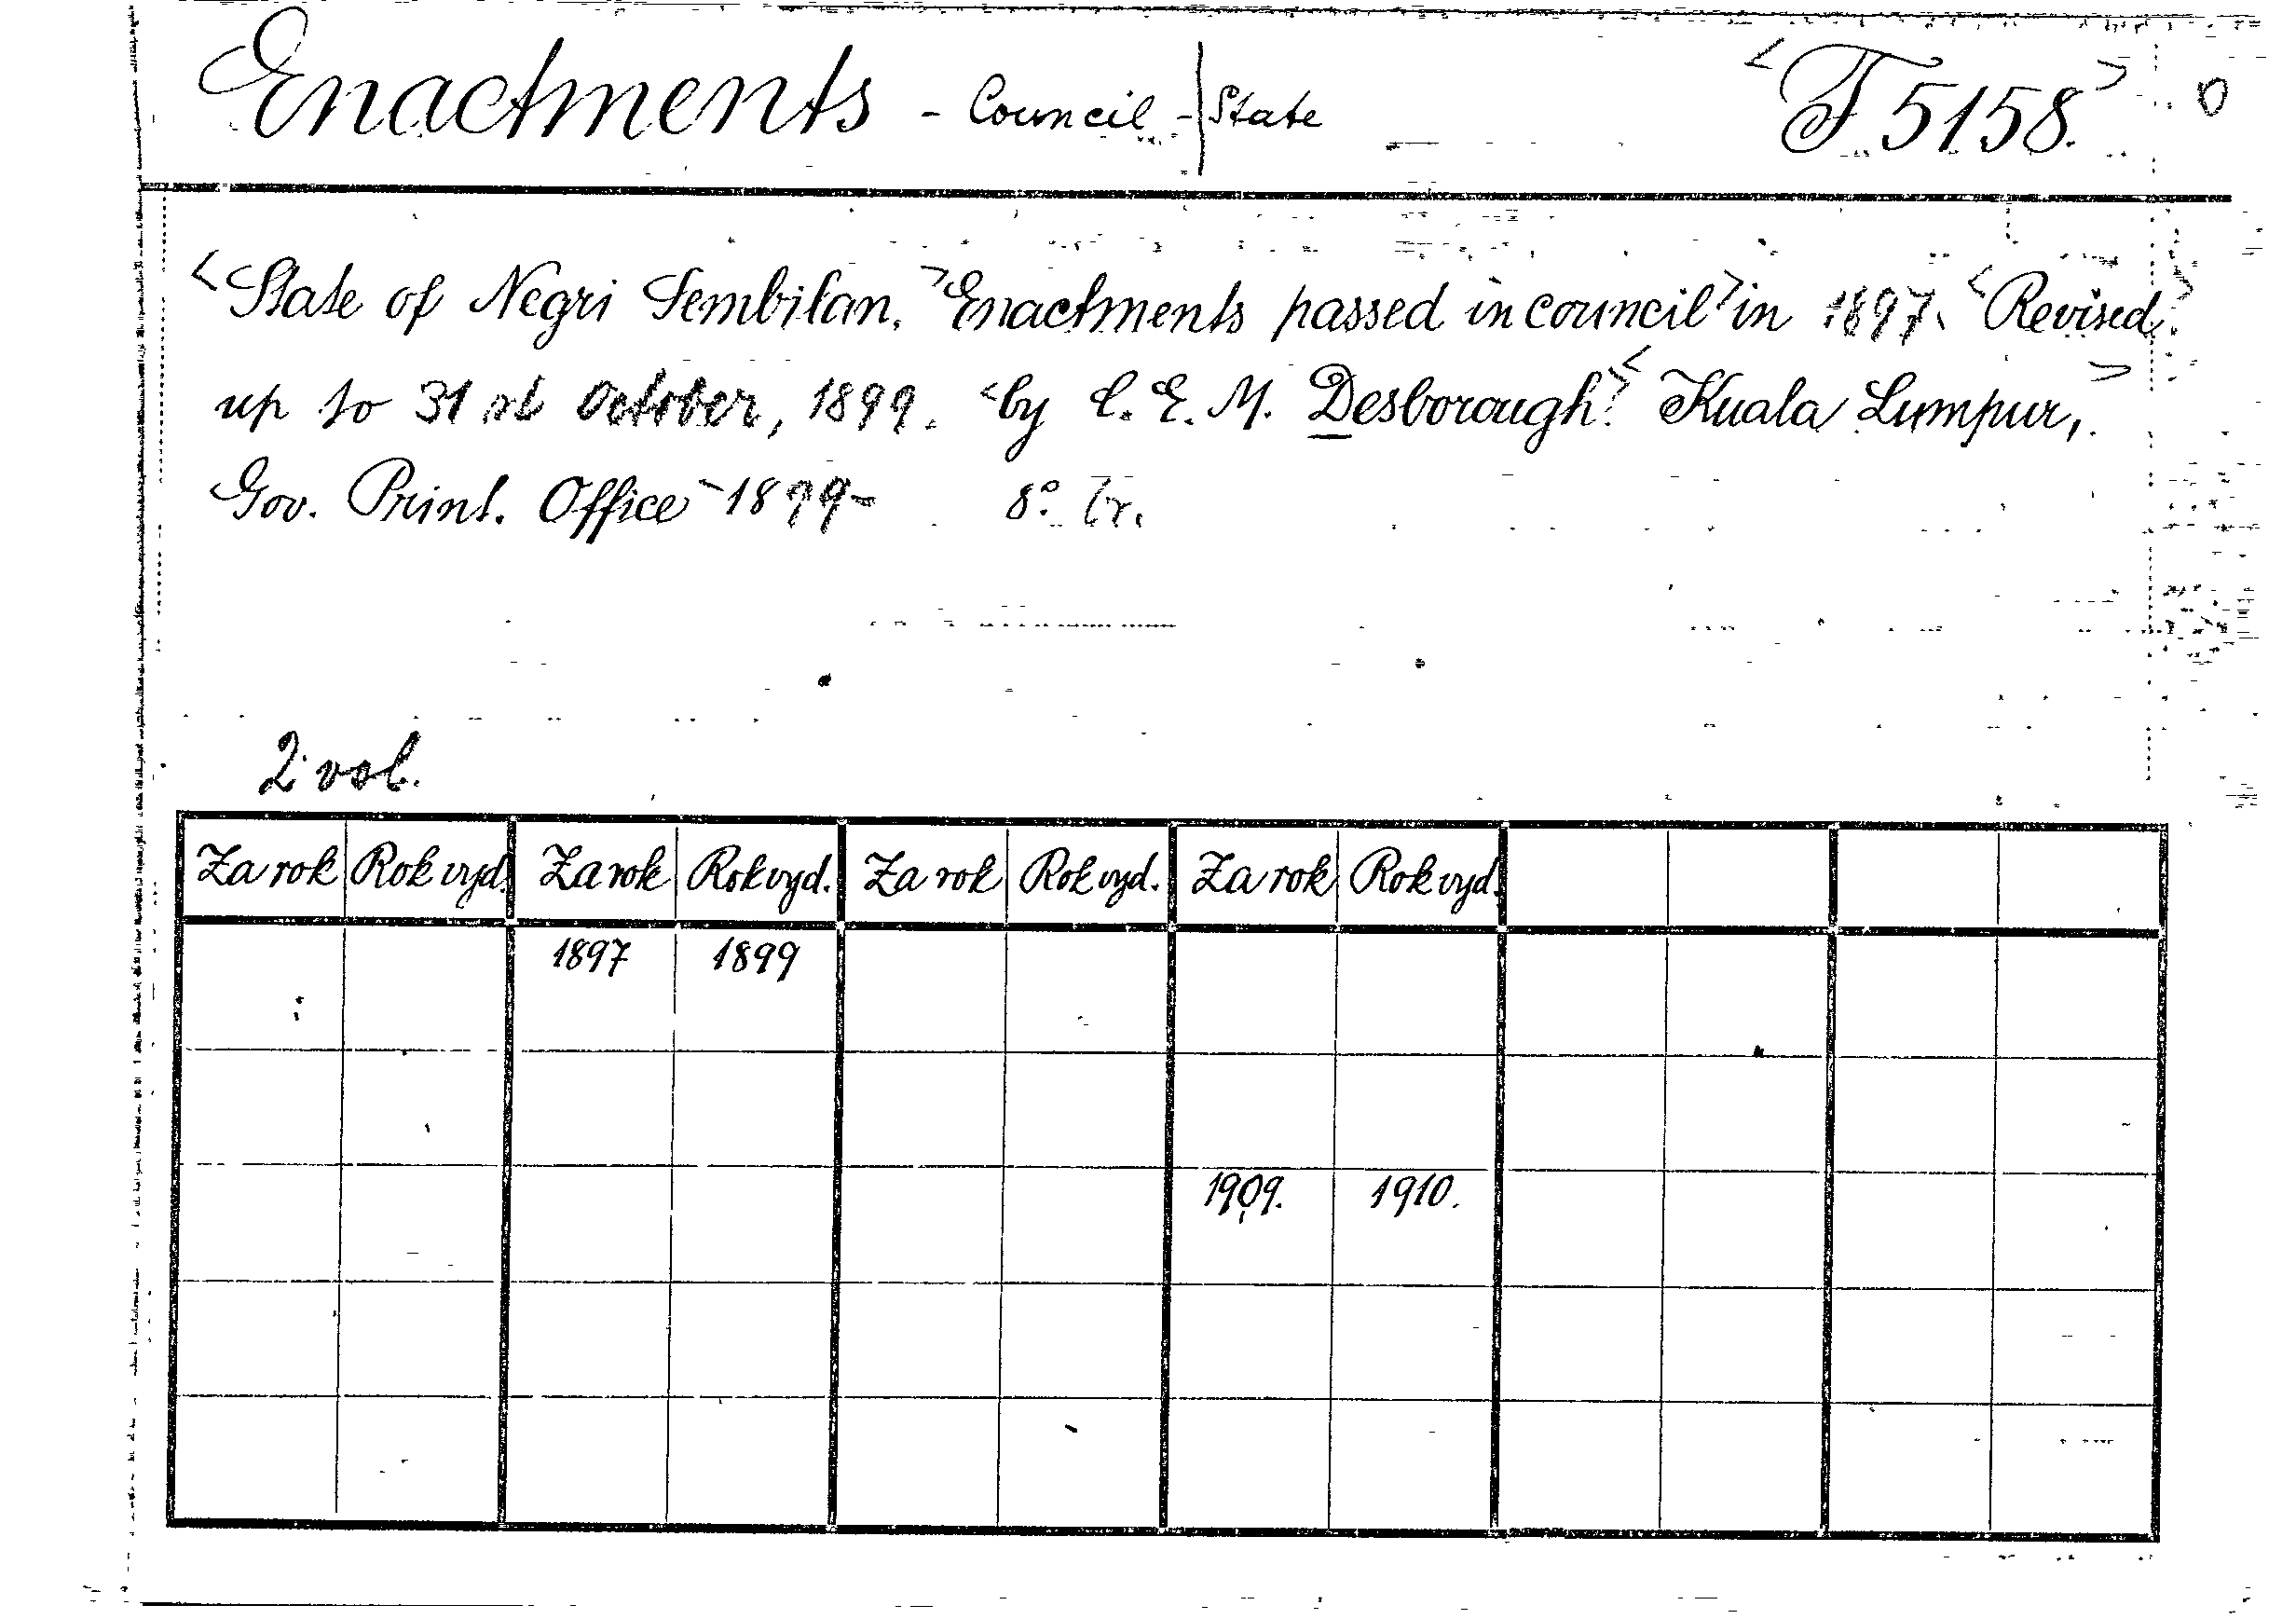 Enactments - Council - | State <F 5158.> 0
<State of Negri Sembilan.> Enactments passed in council> in 1897. <Revised>
up to 31 st October, 1899. <by C. E. M. Desborough.> <Kuala Lumpur,>
Gov. Print. Office - 1899 - 8°.
2 vol.
Za rok Rok vyd. Za rok Rok vyd. Za rok Rok vyd. Za rok Rok vyd.
1897 1899
1909. 1910.